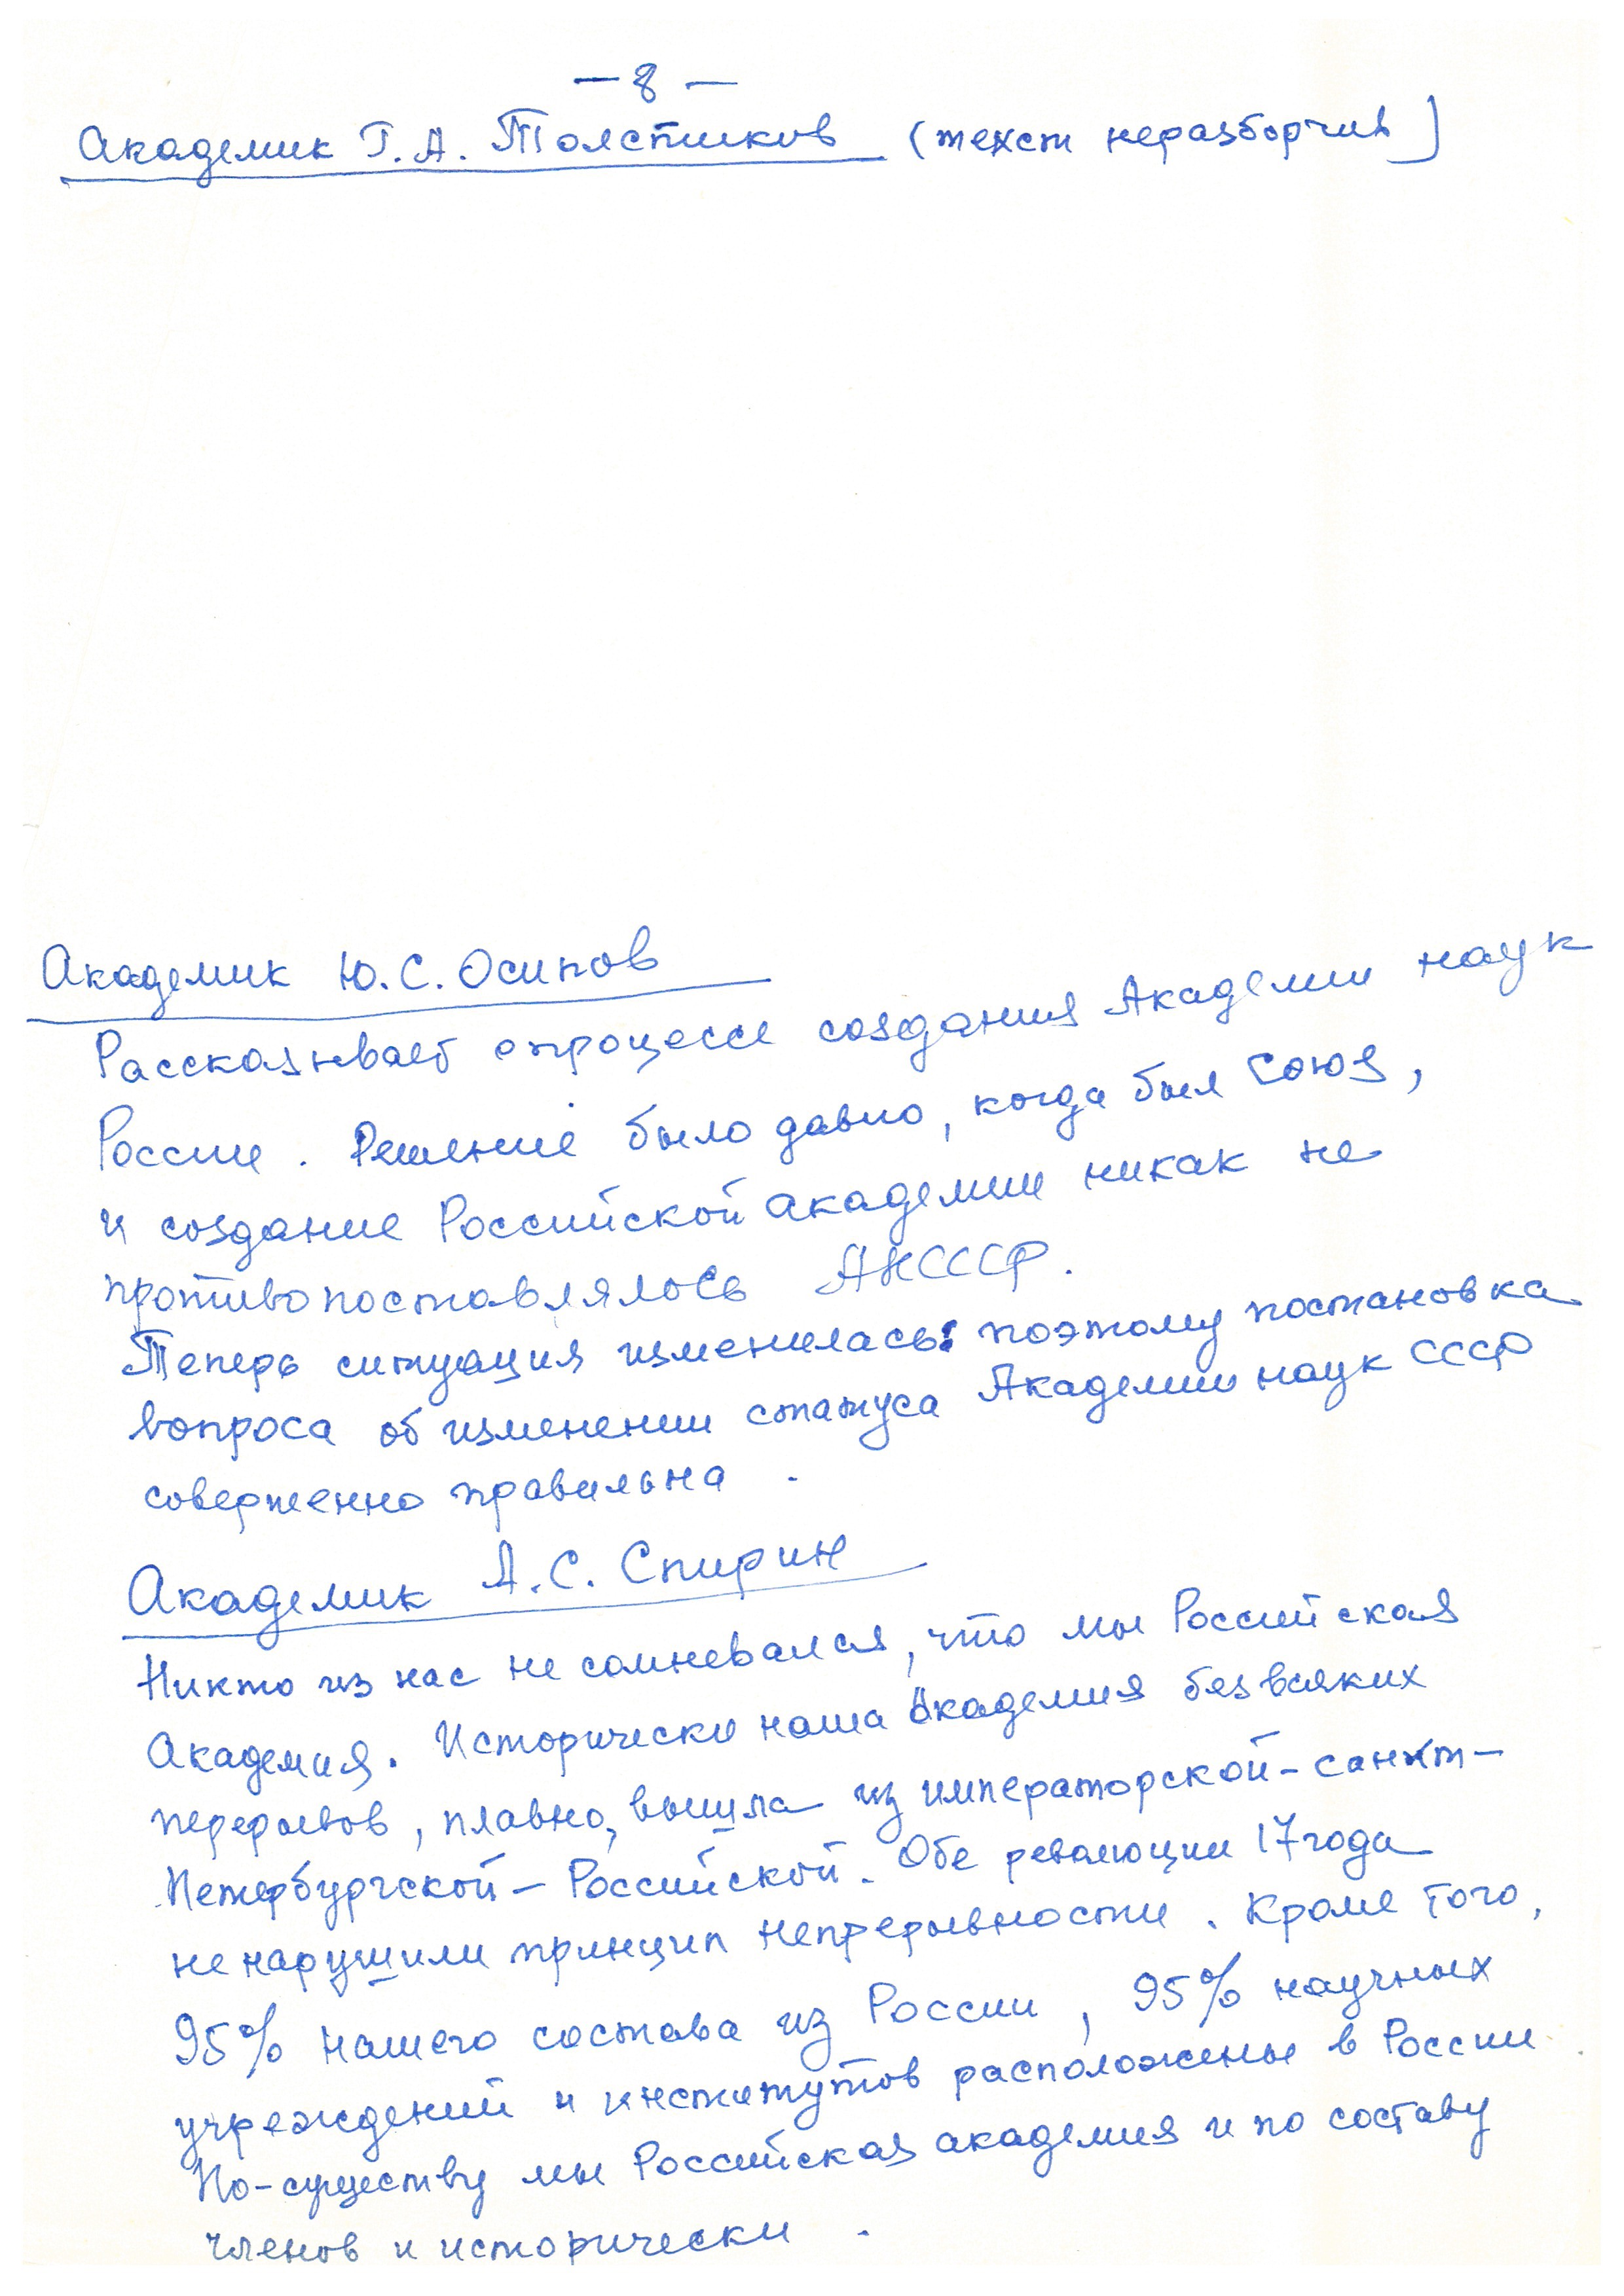 – 8 –
Академик Г. А. Толстиков (текст неразборчив)
Академик Ю. С. Осипов
Рассказывает о процессе создания Академии наук
России. Решение было давно, когда был Союз,
и создание Российской академии никак не
противопоставлялось АН СССР.
Теперь ситуация изменилась: поэтому постановка
вопроса об изменении статуса Академии наук СССР
совершенно правильна.
Академик А. С. Спирин
Никто из нас не сомневался, что мы Российская
Академия. Исторически наша Академия без всяких
перерывов, плавно, вышла из императорской – санкт –
Петербургской – Российской. Обе революции 17 года
не нарушили принцип непрерывности. Кроме того,
95% нашего состава из России, 95% научных
учреждений и институтов расположены в России.
По-существу мы Российская академия и по составу
членов и исторически.